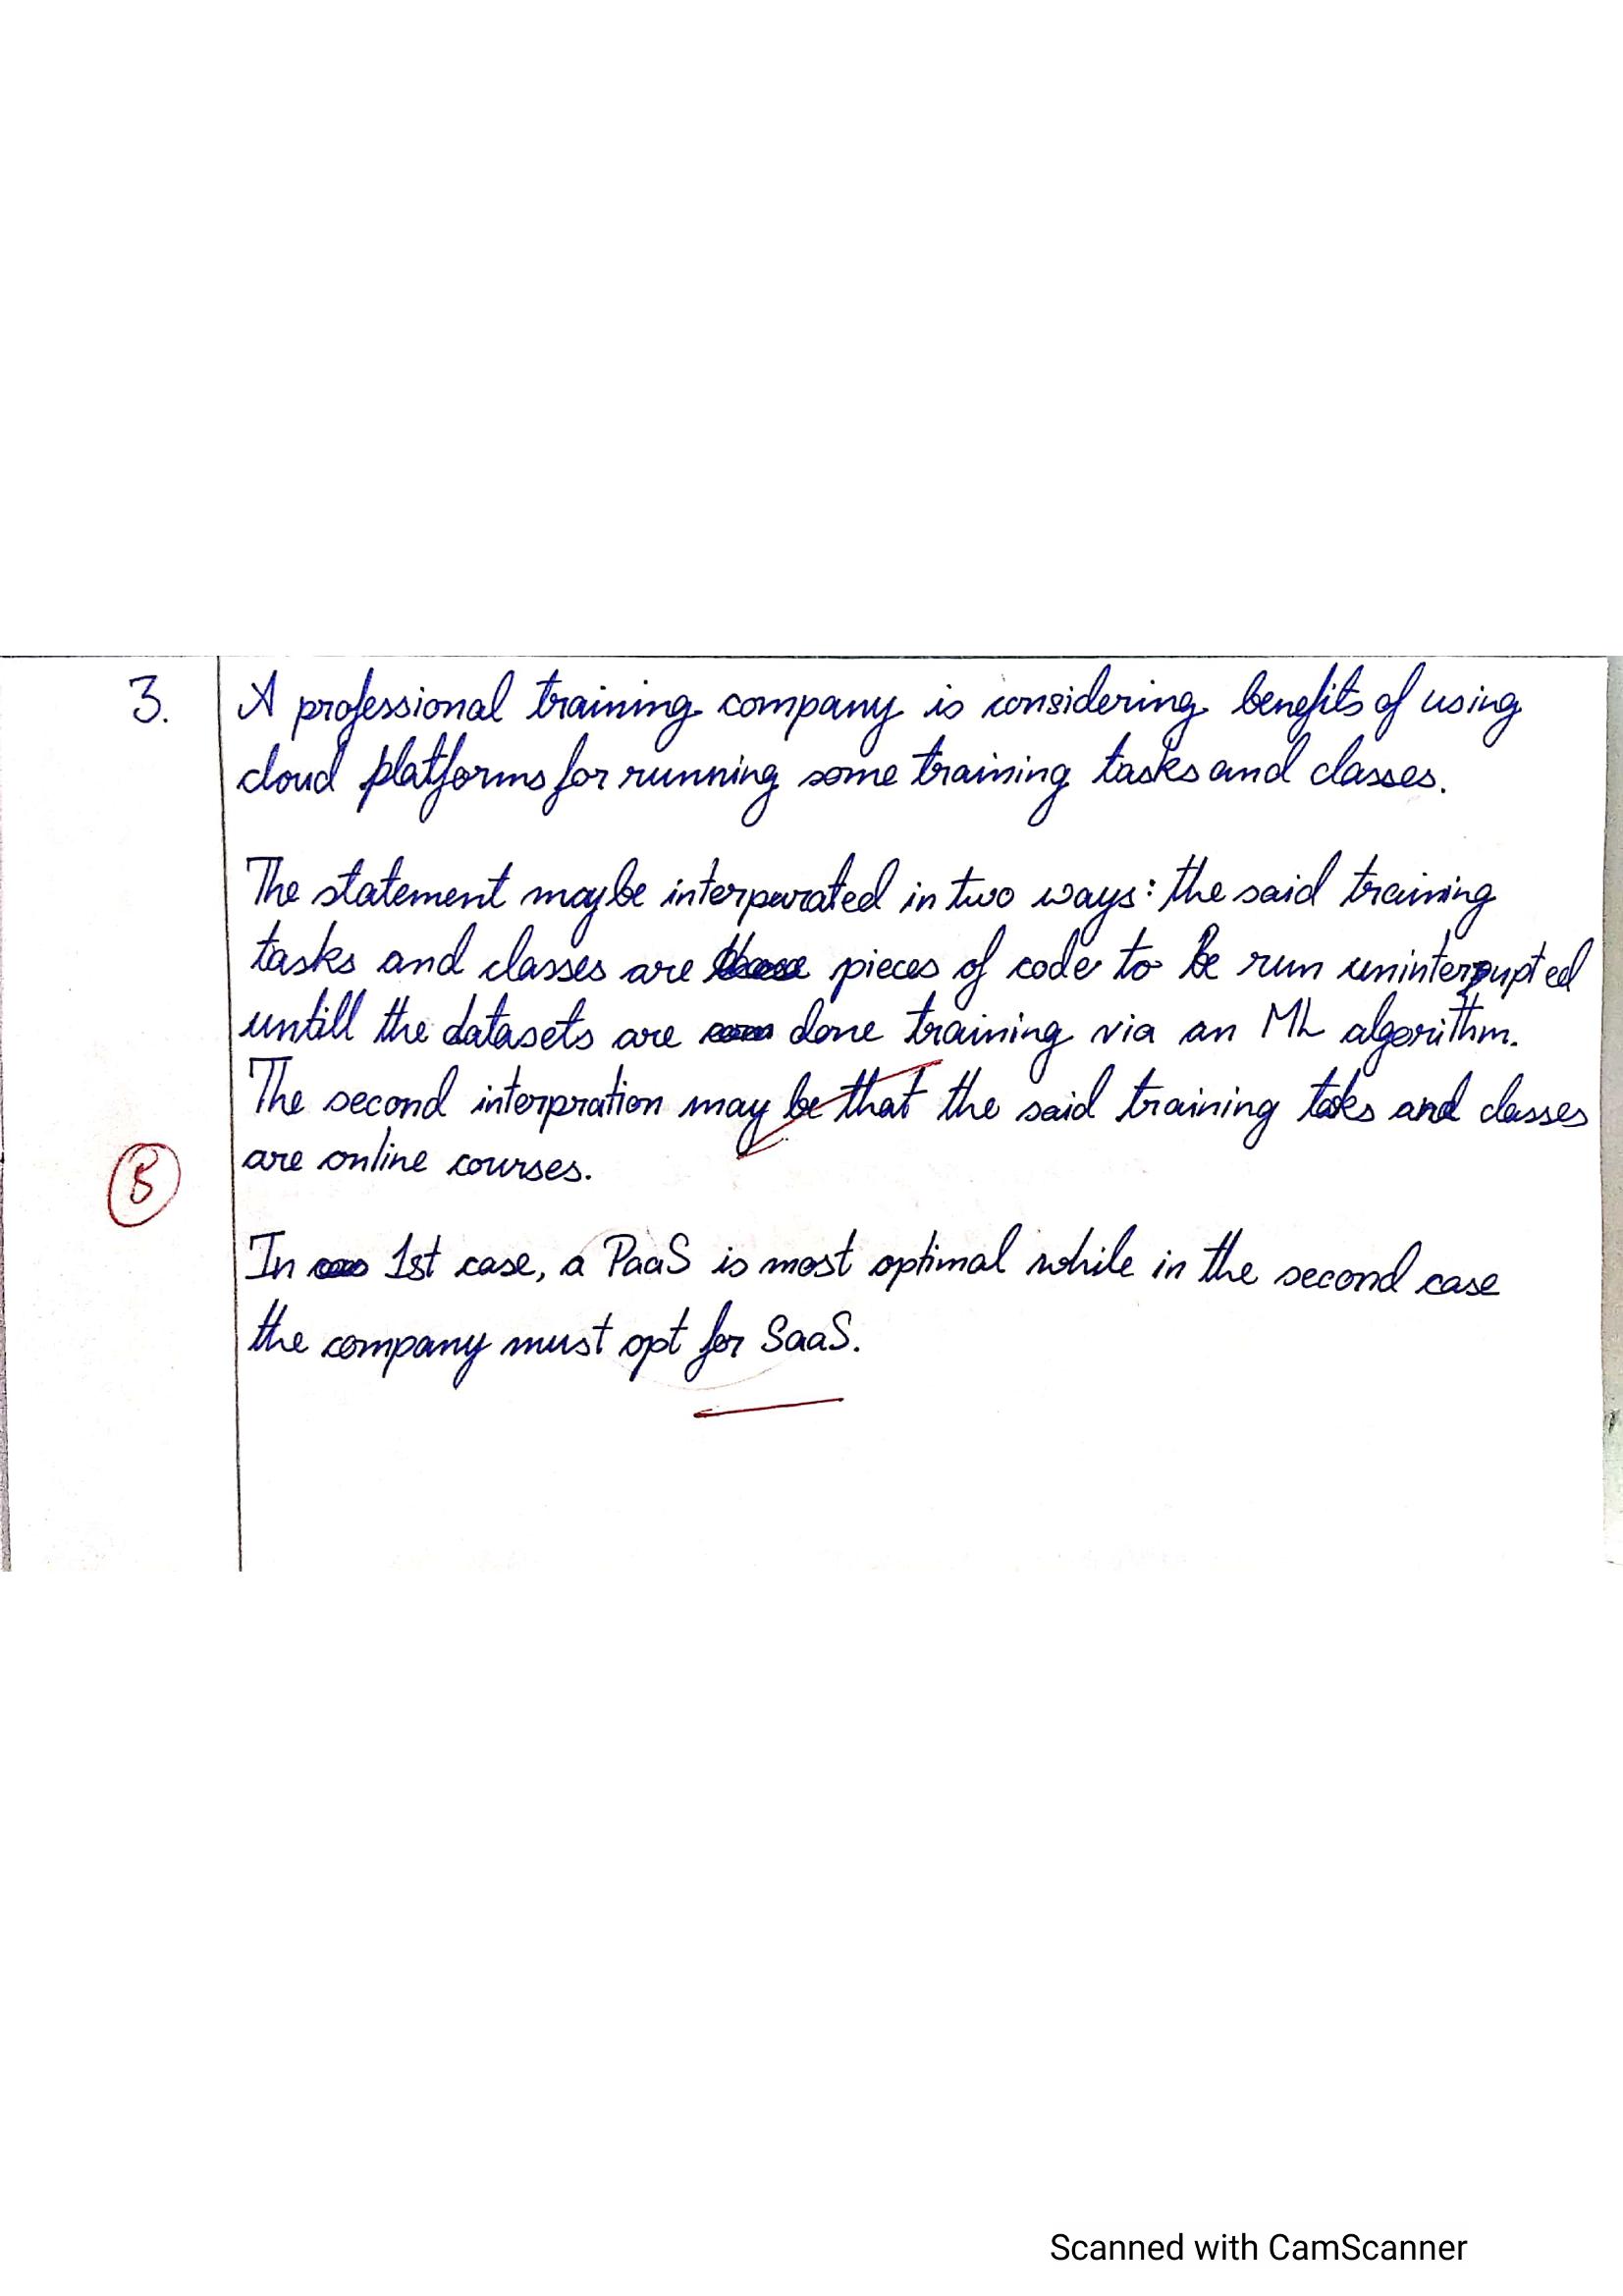 3. A professional training company is considering benefits of using
cloud platforms for running some training tasks and classes.
The statement maybe interpurated in two ways: the said training
tasks and classes are pieces of code to be run uninterrupted
untill the datasets are done training via an ML algorithm.
The second interpration may be that the said training taks and classes
are online courses.
B
In 1st case, a PaaS is most optimal while in the second case
the company must opt for SaaS.
Scanned with CamScanner